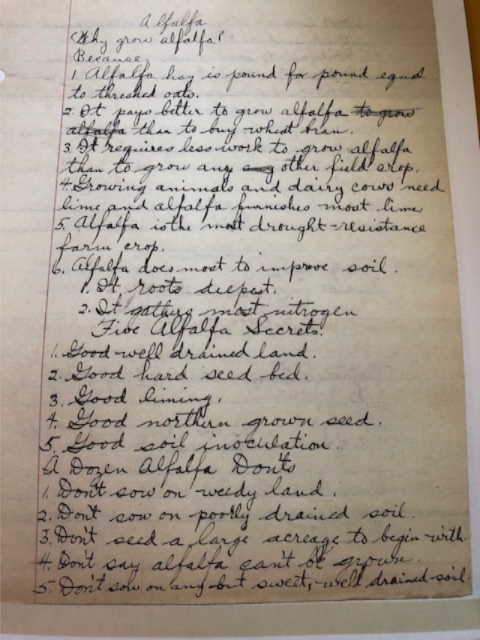 Alfalfa
Why grow alfalfa?
Because
1. Alfalfa hay is pound for pound equal
to threshed oats.
2. It pays better to grow alfalfa to grow
alfalfa than to buy wheat bran.
3. It requires less work to grow alfalfa
than to grow any other field crop.
4. Growing animals and dairy cows need
lime and alfalfa furnishes most lime
5. Alfalfa is the most drought-resistance
farm crop.
6. Alfalfa does most to improve soil.
1. It roots deepest.
2. It gathers most nitrogen
Five Alfalfa Secrets.
1. Good well drained land.
2. Good hard seed bed.
3. Good liming.
4. Good northern grown seed.
5. Good soil inoculation.
A Dozen Alfalfa Don'ts
1. Don't sow on weedy land.
2. Don't sow on poorly drained soil.
3. Don't seed a large acreage to begin with.
4. Don't say alfalfa can't be grown.
5. Don't sow on any but sweet, well drained soil.